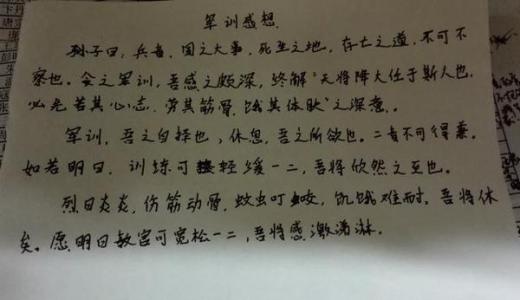 军训感想
孙子曰，兵者，国之大事，死生之地，存亡之道，不可不
察也。今之军训，吾感之颇深，终解“天将降大任于斯人也，
必先苦其心志，劳其筋骨，饿其体肤”之深意。
军训，吾之自择也，休息，吾之所欲也。二者不可得兼。
如若明日，训练可轻缓一二，吾将欣然之至也。
烈日炎炎，伤筋动骨，蚊虫叮咬，饥饿难耐，吾将休
矣。愿明日教官可宽松一二，吾将感激涕淋。